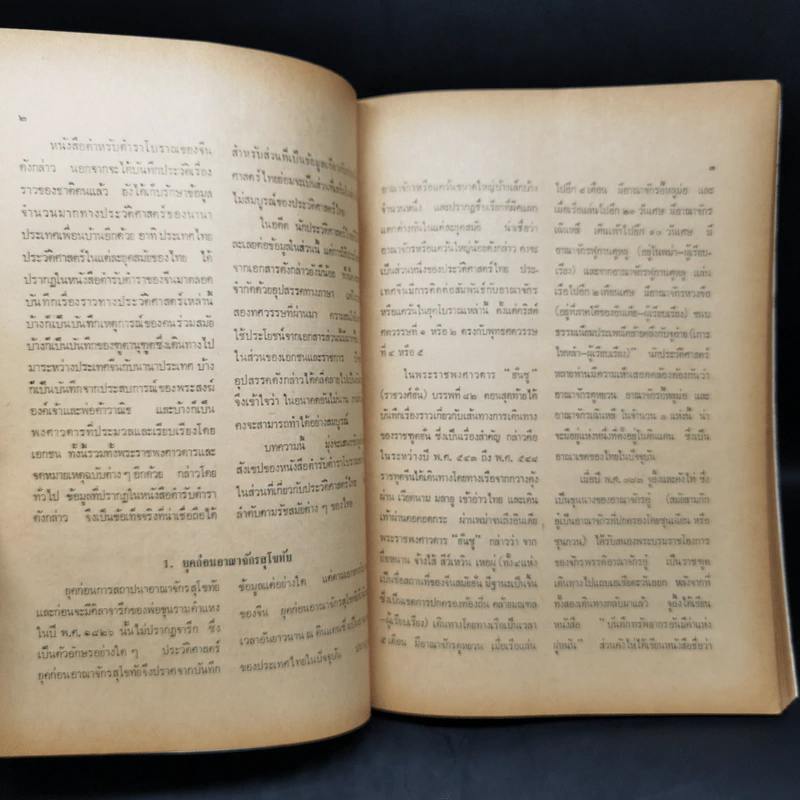 ๒
หนังสือตำหรับตำราโบราณของจีน
ดังกล่าว นอกจากจะได้บันทึกประวัติเรื่อง
ราวของชาติตนแล้ว ยังได้เก็บรักษาข้อมูล
จำนวนมากทางประวัติศาสตร์ของนานา
ประเทศเพื่อนบ้านอีกด้วย อาทิ ประเทศไทย
ประวัติศาสตร์ในแต่ละยุคสมัยของไทย ได้
ปรากฏในหนังสือตำรับตำราของจีนมาตลอด
บันทึกเรื่องราวทางประวัติศาสตร์เหล่านี้
บ้างก็เป็นบันทึกเหตุการณ์ของคนร่วมสมัย
บ้างก็เป็นบันทึกของทูตานุทูตซึ่งเดินทางไป
มาระหว่างประเทศจีนกับนานาประเทศ บ้าง
ก็เป็นบันทึกจากประสบการณ์ของพระสงฆ์
องค์เจ้าและพ่อค้าวาณิช และบ้างก็เป็น
พงศาวดารที่ประมวลและเรียบเรียงโดย
เอกชน ทั้งนี้รวมทั้งพระพงศาวดารและ
จดหมายเหตุฉบับต่าง ๆ อีกด้วย กล่าวโดย
ทั่วไป ข้อมูลที่ปรากฏในหนังสือตำรับตำรา
ดังกล่าว จึงเป็นข้อเท็จจริงที่น่าเชื่อถือได้
สำหรับส่วนที่เป็นข้อมูลเกี่ยวกับ
ศาสตร์ไทยย่อมจะเป็นส่วนเพิ่มเติม
ไม่สมบูรณ์ของประวัติศาสตร์ไทย
ในอดีต นักประวัติศาสตร์ไทย
ละเลยต่อข้อมูลในส่วนนี้
จากเอกสารดังกล่าวยังมีน้อย
จำกัดด้วยอุปสรรคทางภาษา
สองทศวรรษที่ผ่านมา
ใช้ประโยชน์จากเอกสารส่วนนี้
ในส่วนของเอกชนและราชการ
อุปสรรคดังกล่าวได้คลี่คลายไป
จึงเข้าใจว่า ในอนาคตอันไม่นาน
คงจะสามารถทำได้อย่างสมบูรณ์
บทความนี้ มุ่งจะเสนอ
สังเขปของหนังสือตำรับตำราโบราณ
ในส่วนที่เกี่ยวกับประวัติศาสตร์ไทย
ลำดับตามรัชสมัยต่าง ๆ ของไทย
1. ยุคก่อนอาณาจักรสุโขทัย
ยุคก่อนการสถาปนาอาณาจักรสุโขทัย
และก่อนจะมีศิลาจารึกของพ่อขุนรามคำแหง
ในปี พ.ศ. ๑๘๒๖ นั้นไม่ปรากฏจารึก ซึ่ง
เป็นตัวอักษรอย่างใด ๆ ประวัติศาสตร์
ยุคก่อนอาณาจักรสุโขทัยจึงปราศจากบันทึก
ข้อมูลแต่อย่างใด แต่ตามเอกสาร
ของจีน ยุคก่อนอาณาจักรสุโขทัย
เวลาอันยาวนาน ณ ดินแดนซึ่งเป็น
ของประเทศไทยในปัจจุบัน
๓
อาณาจักรหรือแคว้นขนาดใหญ่บ้างเล็กบ้าง
จำนวนหนึ่ง และปรากฏชื่อเรียกที่ผิดแผก
แตกต่างกันในแต่ละยุคสมัย น่าเชื่อว่า
อาณาจักรหรือแคว้นใหญ่น้อยดังกล่าว คงจะ
เป็นส่วนหนึ่งของประวัติศาสตร์ไทย ประ-
เทศจีนมีการติดต่อสัมพันธ์กับอาณาจักร
หรือแคว้นในยุคโบราณเหล่านี้ ตั้งแต่คริสต์
ศตวรรษที่ ๑ หรือ ๒ ตรงกับพุทธศตวรรษ
ที่ ๔ หรือ ๕
ในพระราชพงศาวดาร “ฮั่นซู”
(ราชวงศ์ฮั่น) บรรพที่ ๔๒ ตอนสุดท้ายได้
บันทึกเรื่องราวเกี่ยวกับเส้นทางการเดินทาง
ของราชทูตฮั่น ซึ่งเป็นเรื่องสำคัญ กล่าวคือ
ในระหว่างปี พ.ศ. ๕๔๓ ถึง พ.ศ. ๕๔๘
ราชทูตจีนได้เดินทางโดยทางเรือจากกวางตุ้ง
ผ่าน เวียดนาม มลายู เข้าอ่าวไทย และเดิน
เท้าผ่านคอคอดกระ ผ่านพม่าจนถึงอินเดีย
พระราชพงศาวดาร “ฮั่นซู” กล่าวว่า จาก
เป็นชื่อสถานที่ของจีนสมัยฮั่น มีฐานะเป็นจิ้น
ซึ่งเป็นเขตการปกครองท้องถิ่น คล้ายมณฑล
-ผู้เรียบเรียง) เดินทางโดยทางเรือเป็นเวลา
๕ เดือน มีอาณาจักรตูหยวน เมื่อเรือแล่น
ไปอีก ๔ เดือน มีอาณาจักรอี้หลูม่อ และ
เมื่อเรือแล่นไปอีก ๒๐ วันเศษ มีอาณาจักร
เฉินหลี เดินเท้าไปอีก ๑๐ วันเศษ มี
อาณาจักรฟูกานตูหลู (อยู่ในพม่า-ผู้เรียบ-
เรียง) และจากอาณาจักรฟูกานตูหลู แล่น
เรือไปอีก ๒ เดือนเศษ มีอาณาจักรหวงจือ
(อยู่ที่ภาคใต้ของอินเดีย-ผู้เรียบเรียง) ขนบ
ธรรมเนียมประเพณีคล้ายคลึงกับจูหยา (เกาะ
ไหหลำ-ผู้เรียบเรียง) นักประวัติศาสตร์
หลายท่านมีความเห็นสอดคล้องต้องกันว่า
อาณาจักรตูหยวน อาณาจักรอี้หลูม่อ และ
อาณาจักรเฉินหลี ในจำนวน ๓ แห่งนี้ น่า
จะมีอยู่แห่งหนึ่งที่ตั้งอยู่ในดินแดน ซึ่งเป็น
อาณาเขตของไทยในปัจจุบัน
ซึ่งเป็นขุนนางของอาณาจักรอู๋ (สมัยสามก๊ก
ได้รับสนองพระบรมราชโองการ
เป็นราชทูต
หลังจากที่
ทั้งสองเดินทางกลับมาแล้ว จูอิ้งได้เขียน
หนังสือ
ส่วนคังไท่ได้เขียนหนังสือชื่อว่า